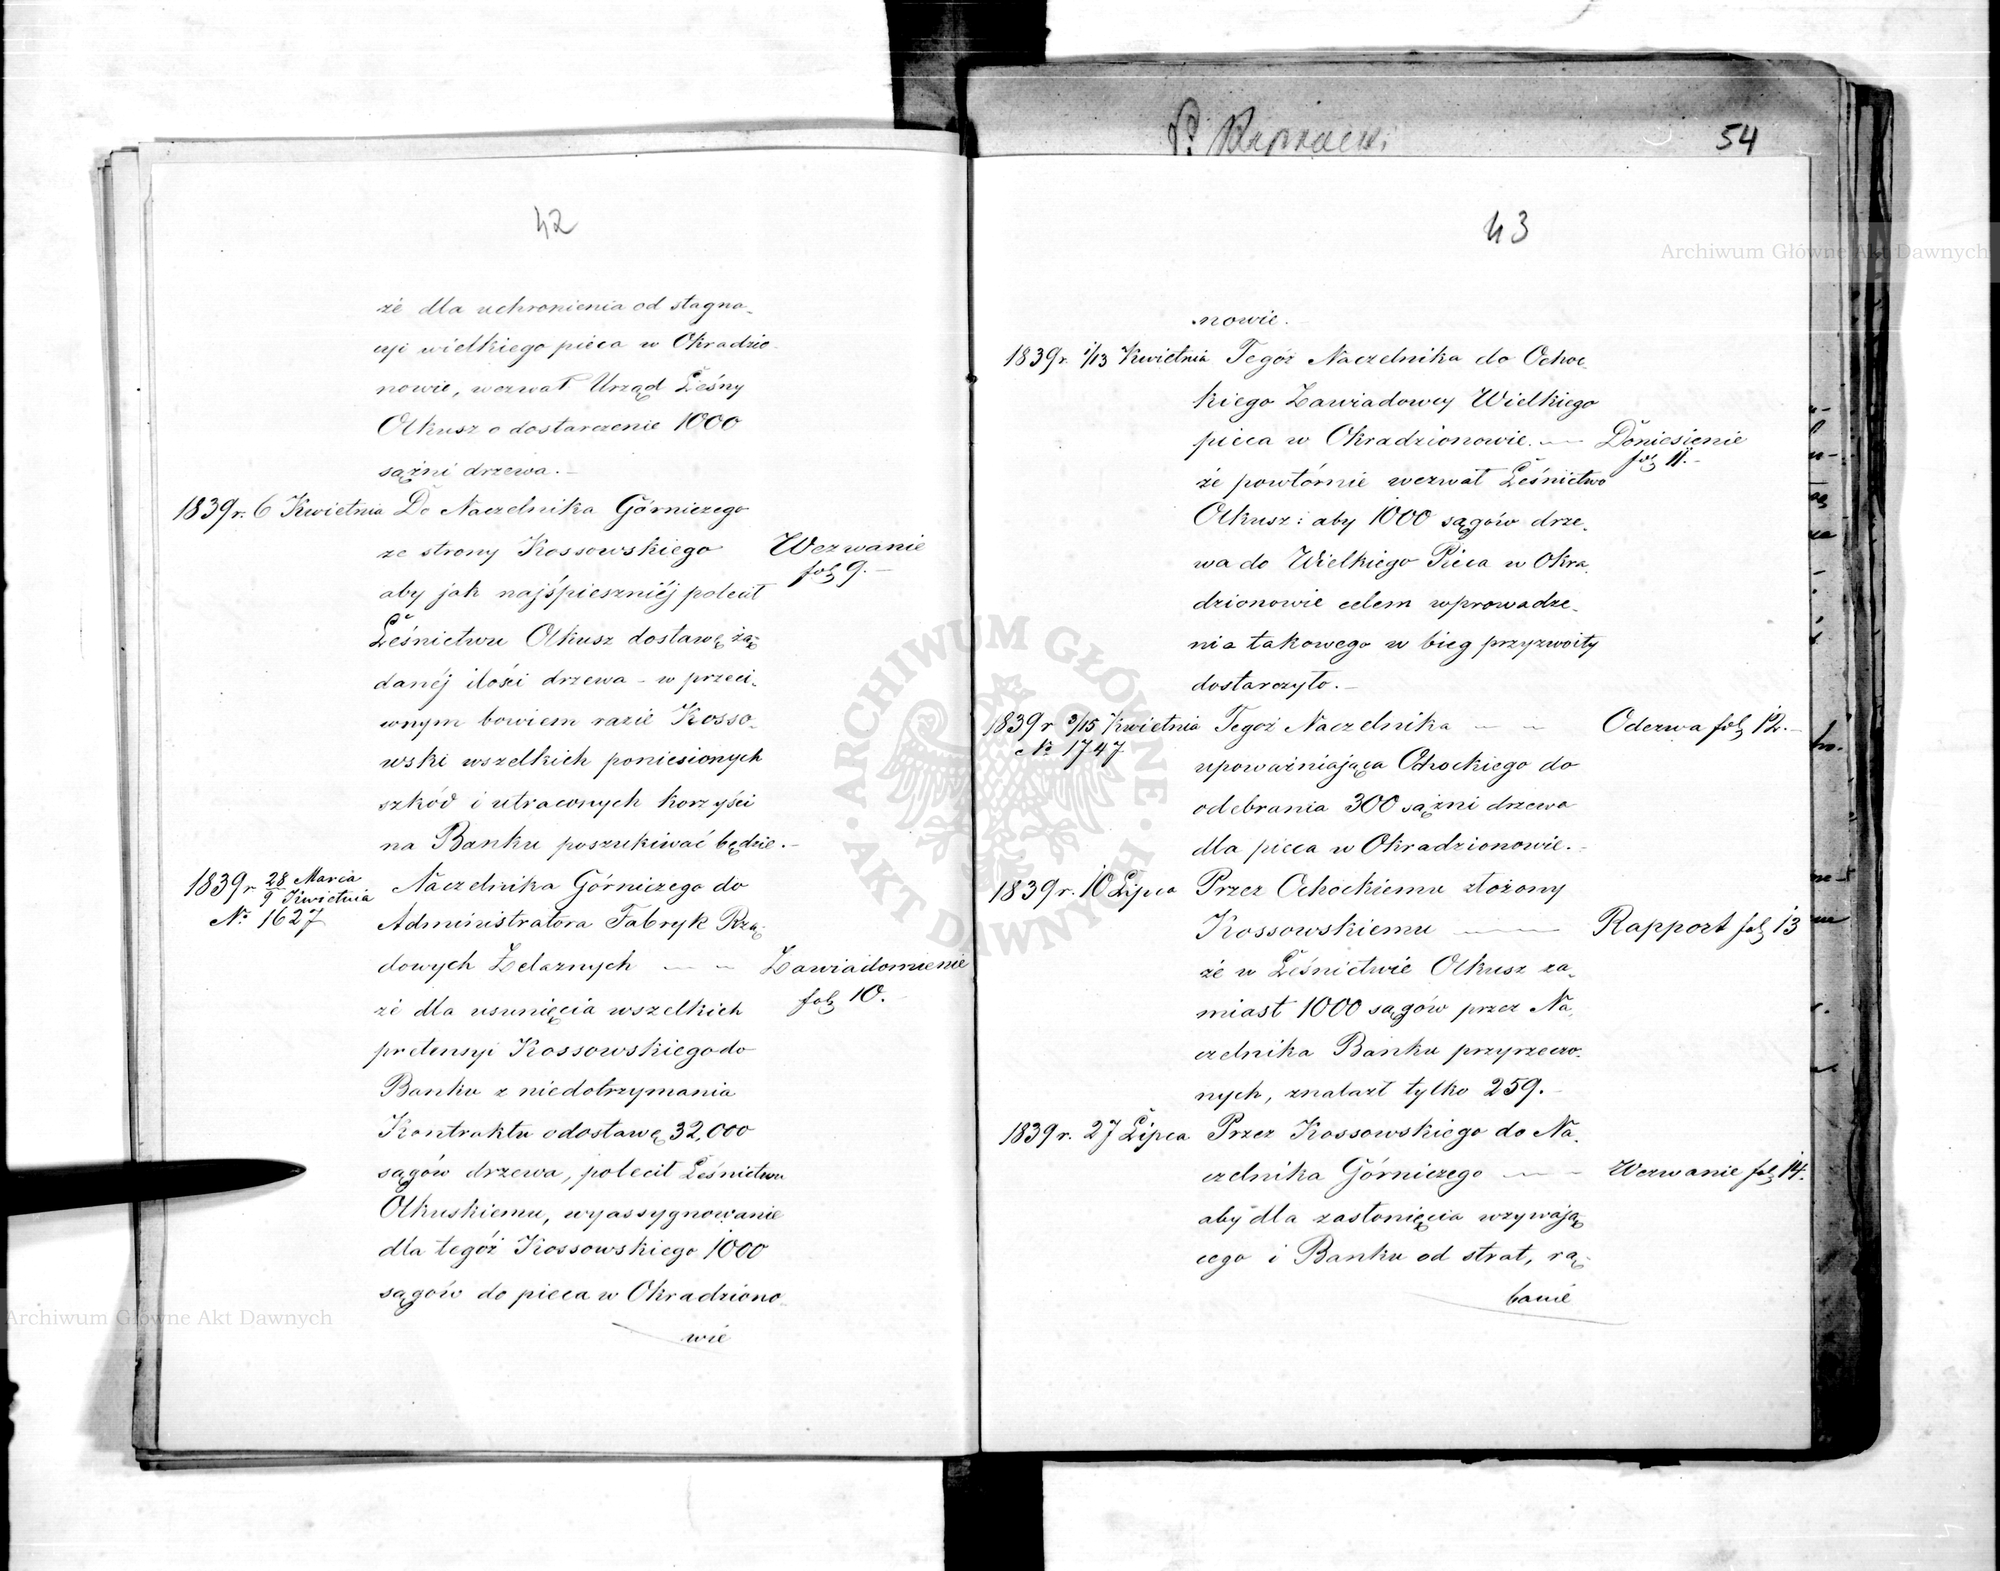 54
42
że dla uchronienia od stagna-
cyi wielkiego pieca w Okradzio-
nowie, wezwał Urząd Leśny
Olkusz o dostarczenie 1000
sążni drzewa.-
1839 r. 6 Kwietnia Do Naczelnika Górniczego
ze strony Kossowskiego Wezwanie
fol 9.-
aby jak najśpieszniéj polecił
Leśnictwu Olkusz dostawę żą-
danéj ilości drzewa - w przeci-
wnym bowiem razie Kosso-
wski wszelkich poniesionych
szkód i utraconych korzyści
na Banku poszukiwać będzie.-
1839 r 28 Marca
9 Kwietnia
Naczelnika Górniczego do
№ 1627
Administratora Fabryk Rzą-
dowych Żelaznych — — Zawiadomienie
fol 10.
że dla usunięcia wszelkich
pretensyi Kossowskiego do
Banku z niedotrzymania
Kontraktu o dostawę 32,000
sągów drzewa, polecił Leśnictwu
Olkuskiemu, wyassygnowanie
dla tegóż Kossowskiego 1000
sągów do pieca w Okradziono-
wie
43
nowie.-
1839 r. 1/13 Kwietnia Tegóż Naczelnika do Ochoc-
kiego Zawiadowcy Wielkiego
pieca w Okradzionowie. — Doniesienie
fol 11.-
że powtórnie wezwał Leśnictwo
Olkusz: aby 1000 sągów drze-
wa do Wielkiego Pieca w Okra-
dzionowie celem wprowadze-
nia takowego w bieg przyzwoity
dostarczyło.-
1839 r 3/15 Kwietnia Tegoż Naczelnika — — Odezwa fol 12.-
№ 1747
upoważniająca Ochockiego do
odebrania 300 sążni drzewa
dla pieca w Okradzionowie.-
1839 r. 10 Lipca Przez Ochockiemu złożony
Kossowskiemu — Rapport fol 13
że w Leśnictwie Olkusz za-
miast 1000 sągów przez Na-
czelnika Banku przyrzeczo-
nych, znalazł tylko 259.-
1839 r. 27 Lipca Przez Kossowskiego do Na-
czelnika Górniczego — — Wezwanie fol 14.
aby dla zasłonięcia wzywają-
cego i Banku od strat, rą-
banie
Archiwum Główne Akt Dawnych
Archiwum Główne Akt Dawnych
ARCHIWUM GŁÓWNE · AKT DAWNYCH ·